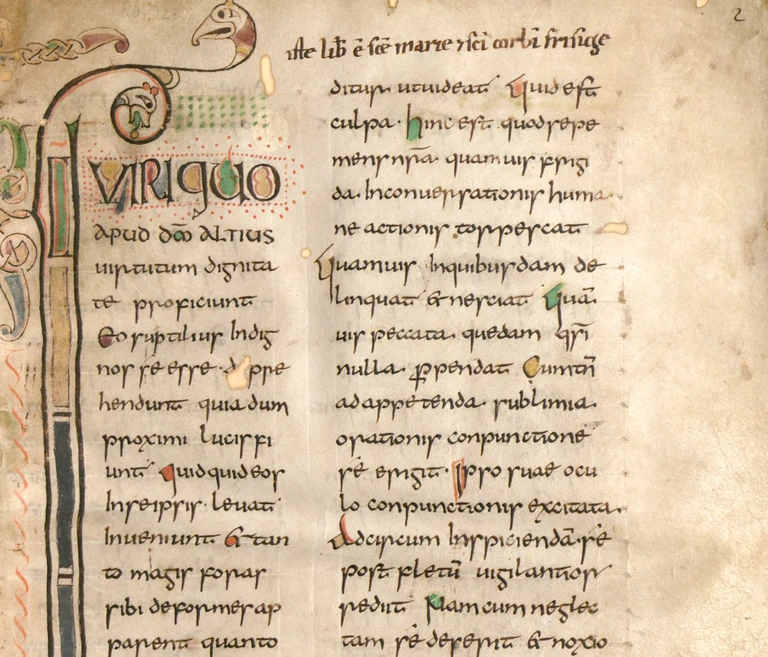 2
iste lib̄ ē scē marie & sc̄i corbīi frisinge
VIRI QUO
APUD dōō ALTIUS
virtutum dignita
te proficiunt
Eo subtilius Indig
nos se esse depre
hendunt quia dum
proximi lucis fi
unt Quidquid eos
In se ipsis levat
Inveniunt & tan
to magis foras
sibi deformes ap
parent quanto
ditur ut videat Quid est
culpa. hinc est. quod sepe
mens nr̄a quamvis frigi
da. In conversationis huma
ne actionis torpescat
Quamvis In quibusdam de
linquat & nesciat Quā
vis peccata quedam q̄si
nulla p̄pendat Cum tn̄
ad appetenda. sublimia
orationis conpunctione
se erigit. Ipso suae ocu
lo conpunctionis excitata
Ad circum Inspicienda. se
post fletū vigilantior
redit Nam cum neglec
tam se deserit & noxio